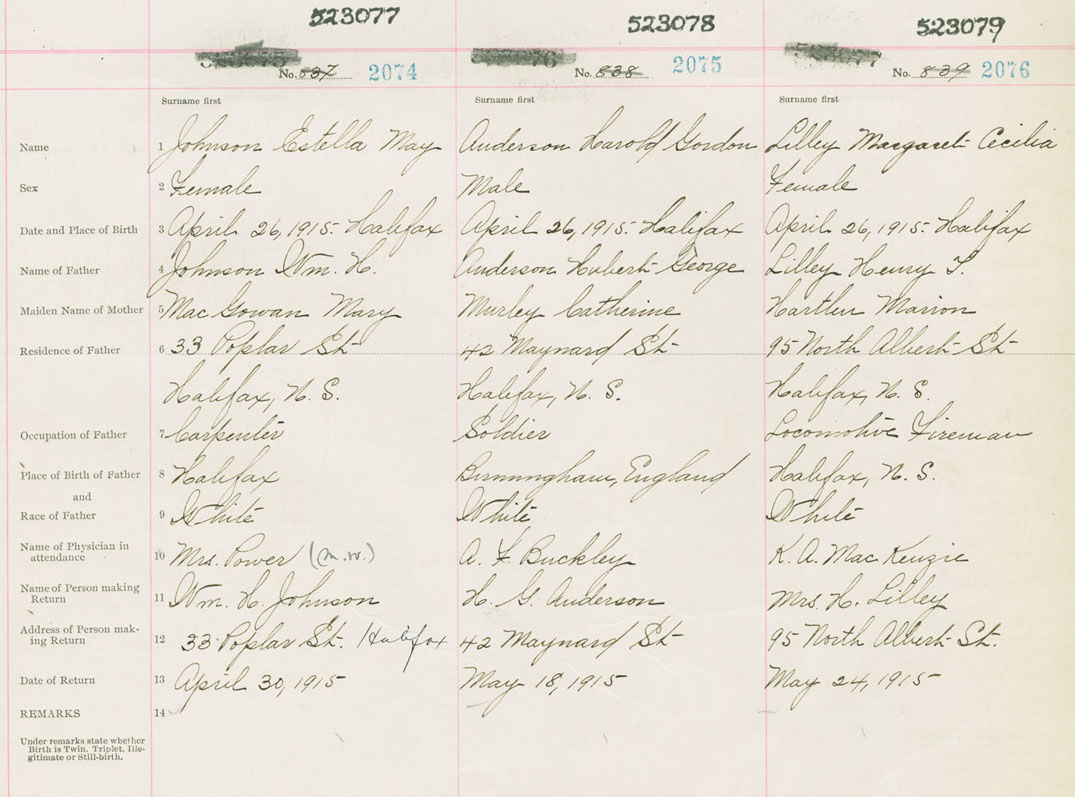 523077 523078 523079
No. 837 2074 No. 838 2075 No. 839 2076
Surname first Surname first Surname first
Name 1 Johnson Estella May Anderson Harold Gordon Lilley Margaret Cecilia
Sex 2 Female Male Female
Date and Place of Birth 3 April 26, 1915 - Halifax April 26, 1915 - Halifax April 26, 1915 - Halifax
Name of Father 4 Johnson Wm. H. Anderson Hubert George Lilley Henry T.
Maiden Name of Mother 5 Mac Gowan Mary Murley Catherine Hartlen Marion
Residence of Father 6 33 Poplar St 42 Maynard St 95 North Albert St
Halifax, N. S. Halifax, N. S. Halifax, N. S.
Occupation of Father 7 Carpenter Soldier Locomotive Fireman
Place of Birth of Father 8 Halifax Birmingham, England Halifax, N. S.
and
Race of Father 9 White White White
Name of Physician in
attendance 10 Mrs. Power (M.W.) A. F Buckley K. A. Mac Kenzie
Name of Person making
Return 11 Wm. H. Johnson H. G. Anderson Mrs. H. Lilley
Address of Person mak-
ing Return 12 33 Poplar St. Halifax 42 Maynard St 95 North Albert St.
Date of Return 13 April 30, 1915 May 18, 1915 May 24, 1915
REMARKS 14
Under remarks state whether
Birth is Twin, Triplet, Ille-
gitimate or Still-birth.